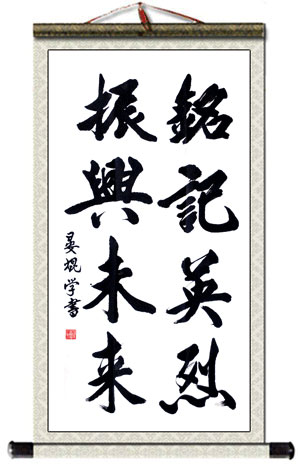 銘記英烈
振興未来
晏焜学書